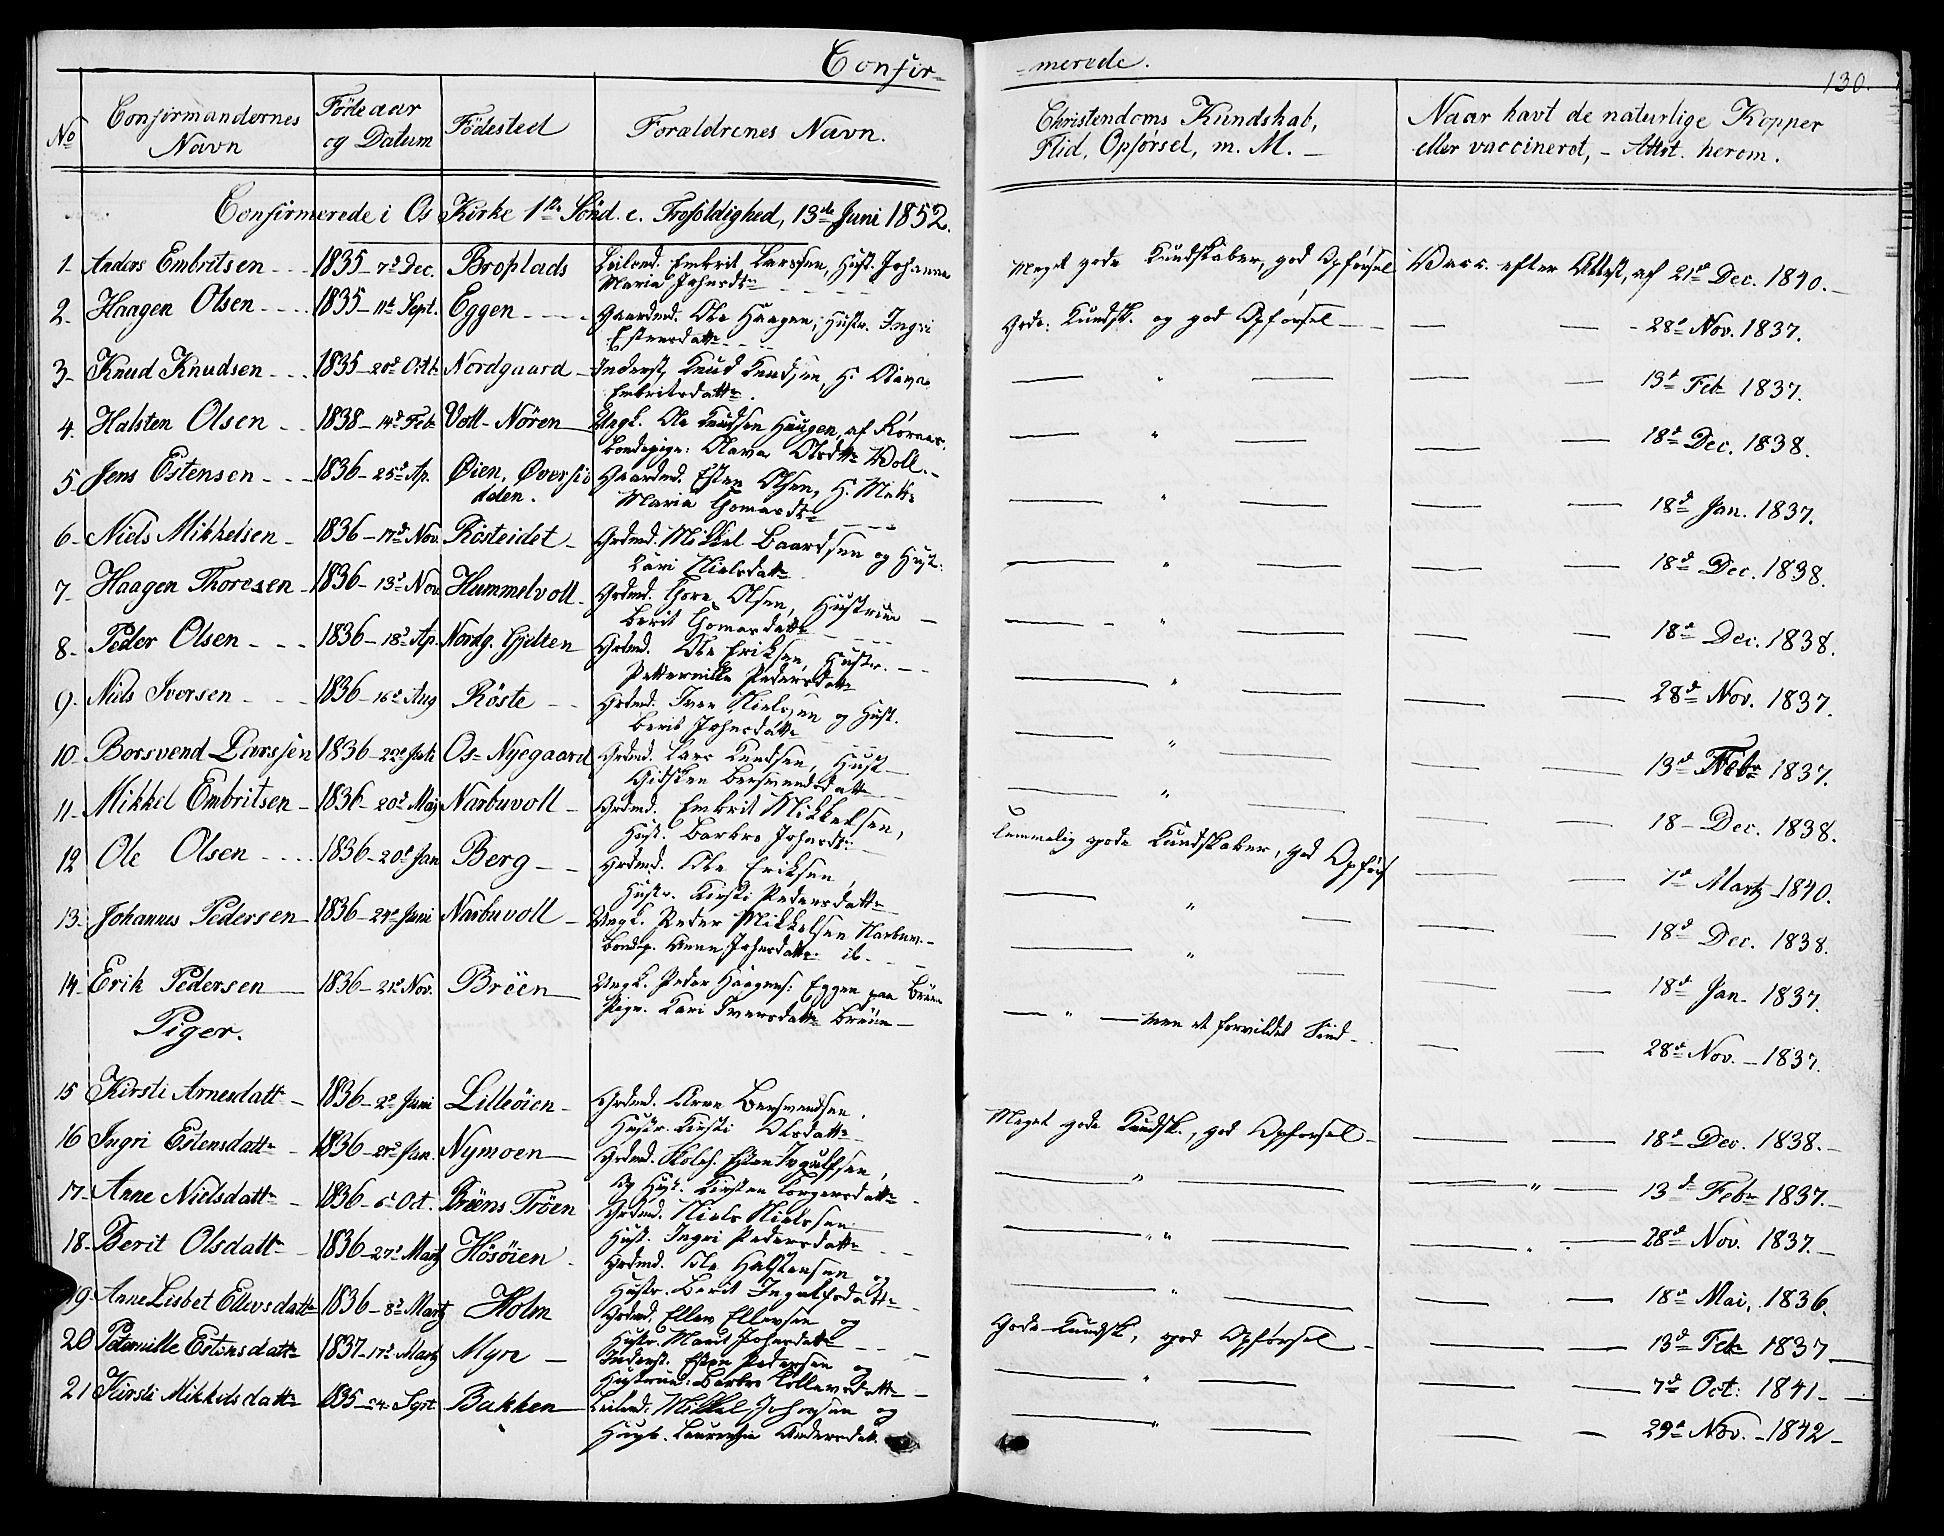 Confir-
-merede.
130.
No
Confirmandernes Navn
Födeaar og Datum
Födested
Forældrenes Navn.
Christendoms Kundskab, Flid, Opførsel, m. M. -
Naar havt de naturlige Kopper eller vaccineret, - Attst. herom.
Confirmerede i Os Kirke 1ste Sönd. e. Trefoldighed, 13de Juni 1852.
1- Anders Embritsen - - - 1835 - 7d Dec. Broplads Leilend. Embrit Larssen, Hust. Johanne
Maria Johnsdtr
Meget gode Kundskaber, god Opførsel Vacc. efter Attest, af 21d Dec. 1840. -
2- Haagen Olsen - - - 1835 - 11d Sept. Eggen - - - Gaardmd. Ole Haagens, Hustr. Ingri
Estensdattr
Gode Kundsk. og god Opførsel - - - 28d Nov. 1837.
3- Knud Knudsen - - - 1835 - 20d Octb Nordgaard - Inderst, Knud Knudsen, H. Olava
Embritsdattr.
— " — — — 13d Feb. 1837.
4- Halsten Olsen - - 1838 - 14d Feb. Voll-Nören - Ungk. Ole Knudsen Haugen, af Röraas.
Bondepige: Olava Olsdtr Woll. -
— " — — — 18d Dec. 1838.
5- Jens Estensen - - - 1836 - 25d Ap. Øien, Øversjödden. Gaardmd. Esten Olsen, H. Mette
Maria Thomasdtr
— " — — — 18d Jan. 1837.
6- Niels Mikkelsen - 1836 - 17d Nov. Rösteidet - Grdmd. Mikkel Baardsen og Hust.
Kari Nielsdattr
— " — — — 18d Dec. 1838.
7- Haagen Thoresen - 1836 - 13d Nov. Hummelvoll - Grdmd. Thore Olsen, Hustrue
Berit Thomasdattr
— " — — — 18d Dec. 1838.
8- Peder Olsen - - - 1836 - 18d Ap. Nordg. Gjelten Grdmd. Ole Eriksen, Hustr. - -
Petternille Pedersdattr
— " — — — 28d Nov. 1837.
9- Niels Iversen - - - 1836 - 16d Aug Röste - - Grdmd. Iver Nielsen og Hust.
Berit Johnsdattr
— " — — — 13d Febr 1837.
10- Borsvend Larssen 1836 - 22d Juli Os-Nyegaard Grdmd. Lars Knudsen, Hust
Gidsken Bersvendsdattr
— " — — — 18 - Dec. 1838.
11- Mikkel Embritsen - 1836 - 20d Maj Narbuvoll - Grdmd. Embrit Mikkelsen,
Hust. Barbro Johnsdtr
Temmelig gode Kundskaber, god Opførs — — 7d Martz 1840.
12 Ole Olsen - - - 1836 - 20d Jan Berg - - Grdmd. Ole Eriksen
Hustr. Kirsti Pedersdattr
— " — — — 18d Dec. 1838.
13- Johannes Pedersen - 1836 - 24d Juni Narbuvoll - Ungk. Peder Mikkelsen Narbuv. -
Bondep. Anne Johnsdattr ib -
— " — — — 18d Jan. 1837.
14- Erik Pedersen - 1836 - 21d Nov. Bröen - Ungk. Peder Haagens: Eggen paa Bröen
Pige. Kari Iversdattr Bröen -
— " — men et forvildet Sind - — — 28d Nov. - 1837.
Piger.
15 Kirsti Arnesdattr - 1836 - 2d Juni Lilleöien - Grdmd. Arne Bersvendsen.
Hustr. Kirsti Olsdattr
Meget gode Kundsk., god Opførsel - — — 18d Dec. 1838. -
16 Ingri Estensdattr - 1836 - 28d Jan. Nymoen - Grdmd. Kolch. Esten Ingulfsen,
Og Hust. Kirsten Torgersdattr
— " — — " — 13d Febr 1837. -
17- Anne Nielsdattr - 1836 - 6d Oct. Bröens Tröen Grdmd. Niels Nielssen
Hust. Ingri Pedersdattr
— " " — — " — 28d Nov. 1837. -
18- Berit Olsdattr - 1836 - 27d Martz Hösöien - Grdmd. Ole Halstensen og
Hustr. Berit Ingulfsdattr
— " — — — 18d Mai, 1836.
19- Anne Lisbet Ellevsdattr 1836 - 8d Martz Holm Grdmd. Ellev Ellevsen og
Hustr. Marit Johnsdattr
Gode Kundsk, god Opførsel - — — 13d Feb. 1837
20 Peternille Estensdattr 1837 - 17d Martz Myre - Inderst. Esten Pedersen og
Hustrue: Barbro Tollevsdattr -
— " — — — 7d Oct: 1841 -
21 Kirsti Mikkelsdattr 1835 - 24 Sept. Bakken - Leilend. Mikkel Johnsen og
Hust. Laurentze Andersdatt.
— " — — — 29d Nov. - 1842 -